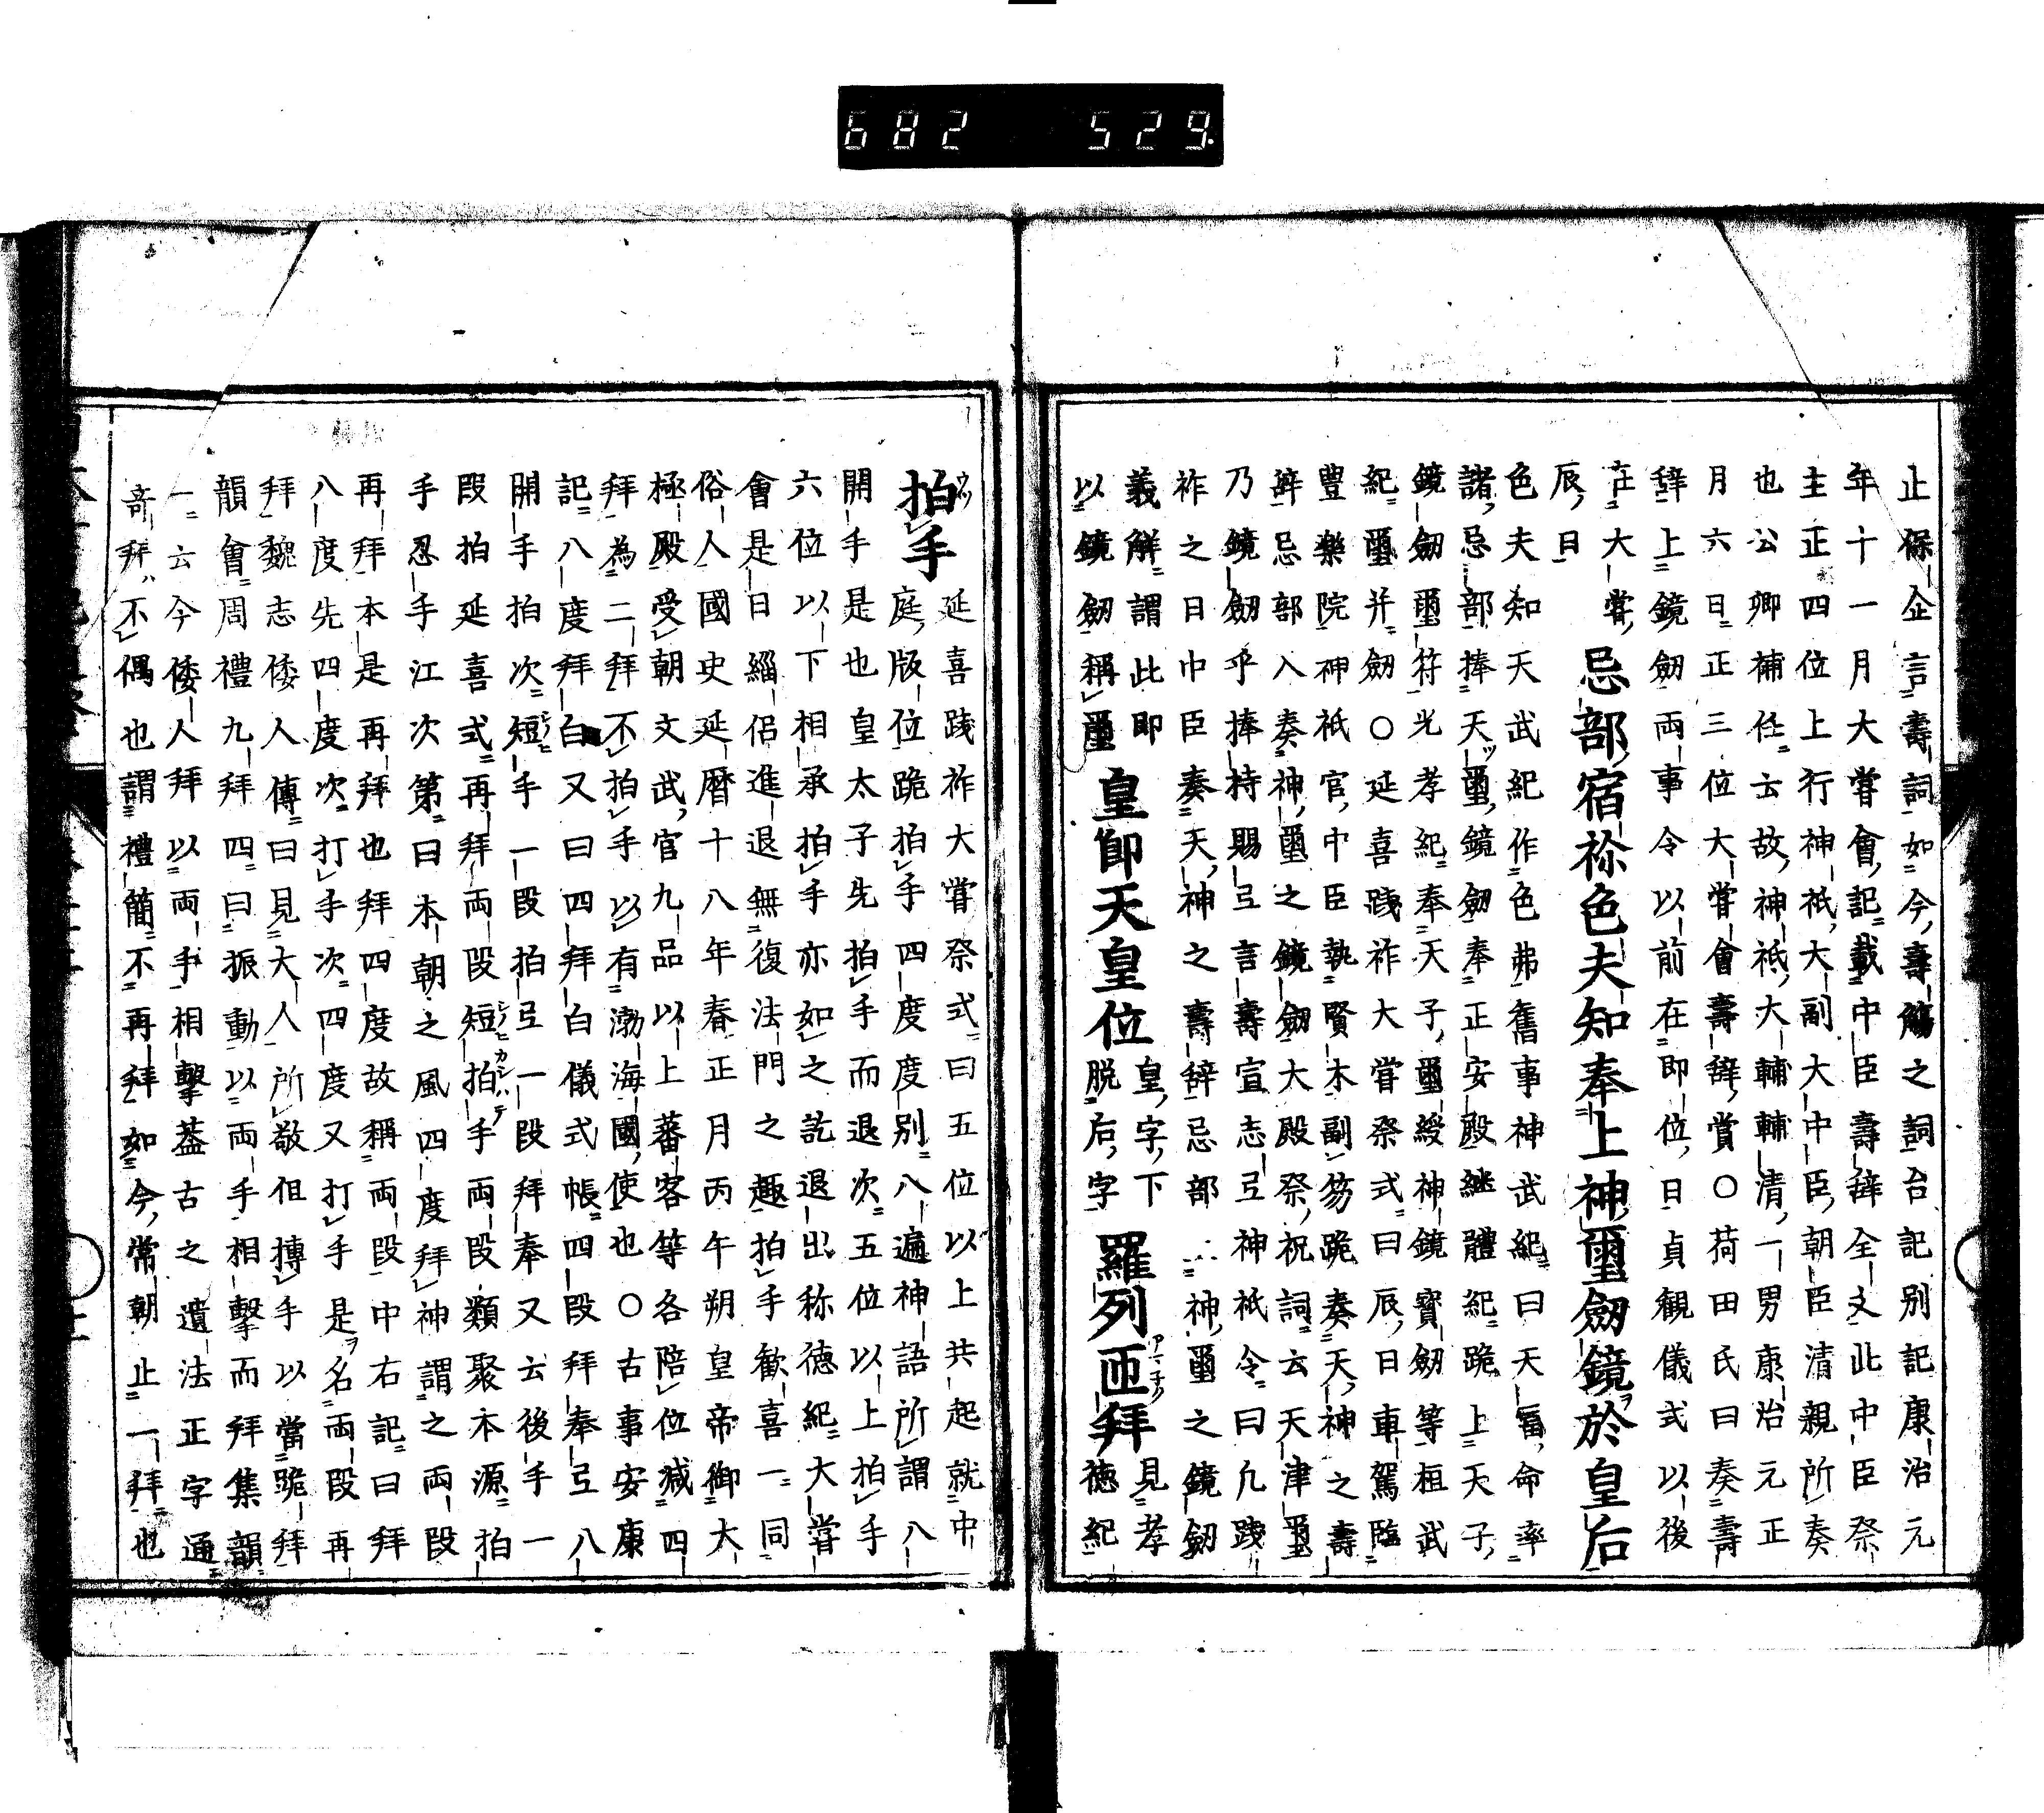 682 529
止保企言壽詞如今壽觴之詞台記別記康治元
年十一月大嘗會記載中臣壽辞全文此中臣祭
主正四位上行神祇大副大中臣朝臣清親所奏
也公卿補任云故神祇大輔輔清一男康治元正
月六日正三位大嘗會壽辞賞〇荷田氏曰奏壽
辞上鏡劔両事令以前在即位日貞観儀式以後
在大嘗
辰日
忌部宿祢色夫知奉上神璽劔鏡於皇后
色夫知天武紀作色弗舊事神武紀曰天冨命率
諸忌部捧天璽鏡劔奉正安殿継體紀跪上天子
鏡劔璽符光孝紀奉天子璽綬神鏡寳劔等桓武
紀璽并劔〇延喜踐祚大嘗祭式曰辰日車駕臨
豊樂院神祇官中臣執賢木副笏跪奏天神之壽
辞忌部入奏神璽之鏡劔大殿祭祝詞云天津璽
乃鏡劔乎捧持賜弖言壽宣志弖神祇令曰凡踐
祚之日中臣奏天神之壽辞忌部上神璽之鏡劔
義解謂此即
以鏡劔稱璽
皇即天皇位
皇字下
脱后字
羅列匝拜
見孝
徳紀
拍手
延喜踐祚大嘗祭式曰五位以上共起就中
庭版位跪拍手四度度別八遍神語所謂八
開手是也皇太子先拍手而退次五位以上拍手
六位以下相承拍手亦如之訖退出称徳紀大嘗
會是日緇侶進退無復法門之趣拍手歓喜一同
俗人國史延暦十八年春正月丙午朔皇帝御大
極殿受朝文武官九品以上蕃客等各陪位減四
拜為二拜不拍手以有渤海國使也〇古事安康
記八度拜白又曰四拜白儀式帳四段拜奉弖八
開手拍次短手一段拍弖一段拜奉又云後手一
段拍延喜式再拜両段短拍手両段類聚本源拍
手忍手江次第曰本朝之風四度拜神謂之両段
再拜本是再拜也拜四度故稱両段中右記曰拜
八度先四度次打手次四度又打手是名両段再
拜魏志倭人傳曰見大人所敬但摶手以當跪拜
韻會周禮九拜四曰振動以両手相擊而拜集韻
一云今倭人拜以両手相擊葢古之遺法正字通
竒拜不偶也謂禮簡不再拜如今常朝止一拜也